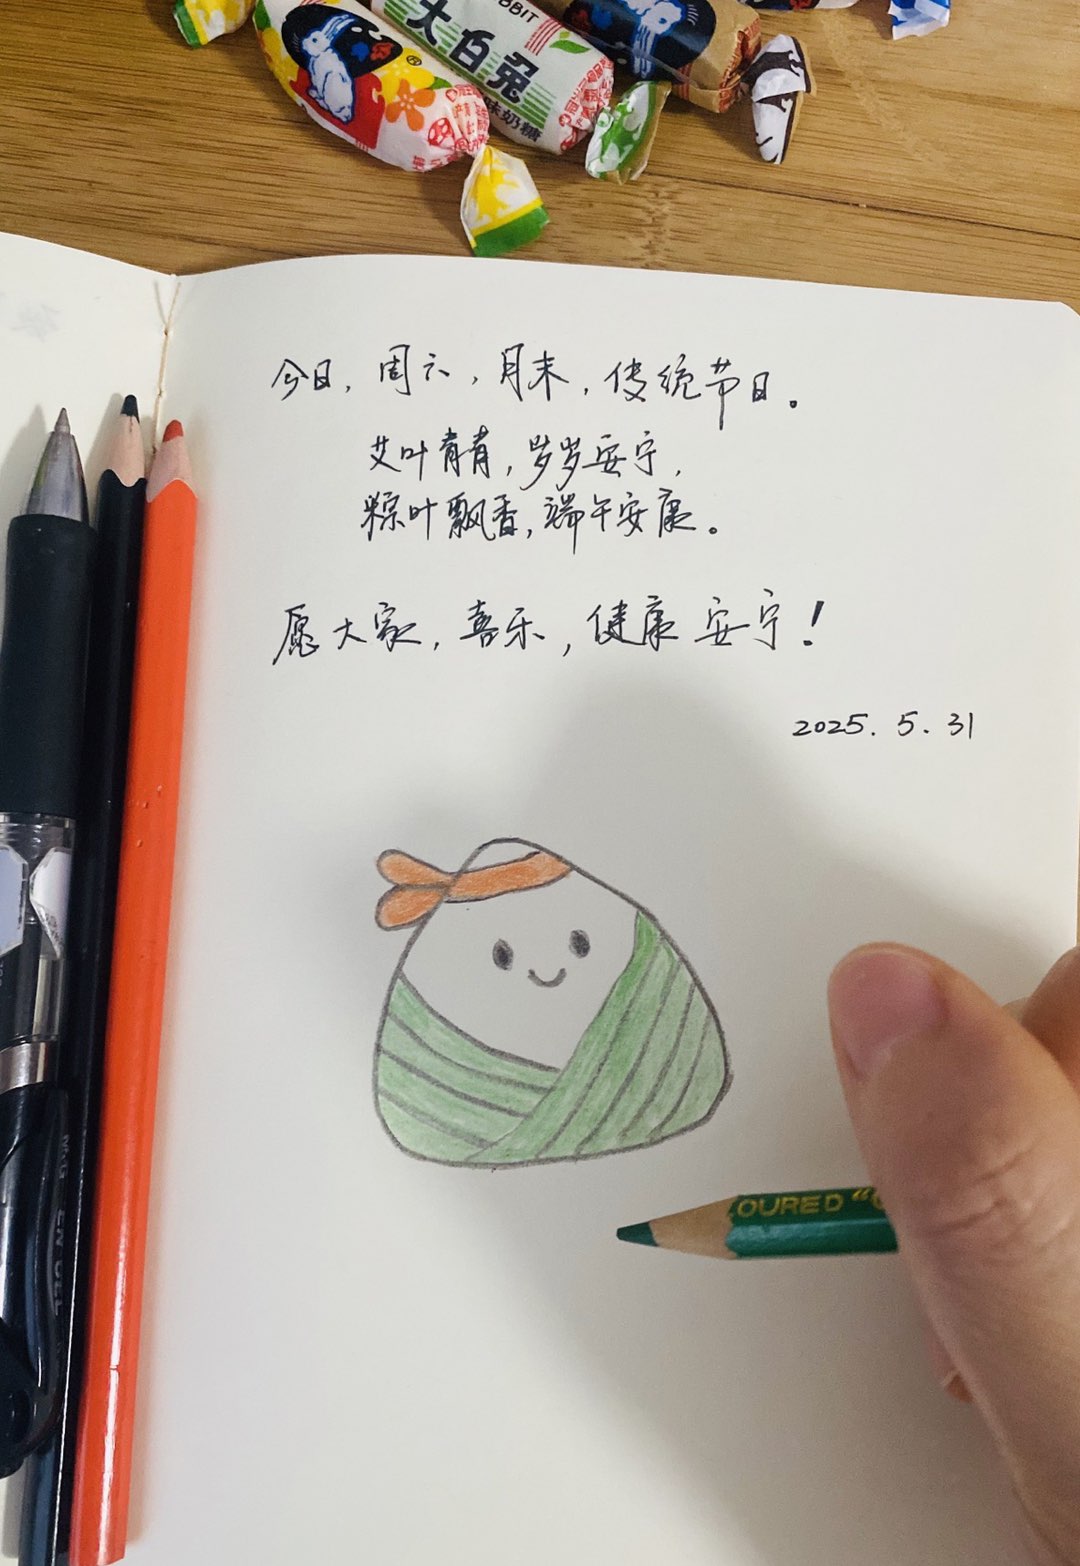 BBIT
大白兔
味奶糖
今日，周六，月末，传统节日。
艾叶青青，岁岁安宁，
粽叶飘香，端午安康。
愿大家，喜乐，健康安宁！
2025.5.31
OURED "